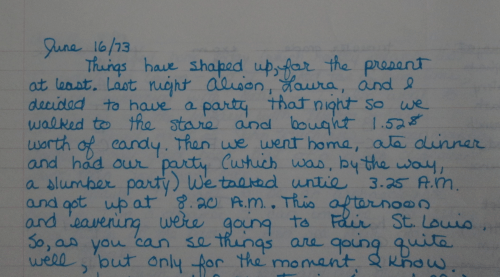 June 16/73
Things have shaped up, for the present
at least. Last night Alison, Laura, and I
decided to have a party that night so we
walked to the store and bought 1.52$
worth of candy. Then we went home, ate dinner
and had our party (which was, by the way,
a slumber party) We talked until 3.25 A.M.
and got up at 8.20 A.M. This afternoon
and eavening we're going to Fair St. Louis.
So, as you can se things are going quite
well, but only for the moment, I know